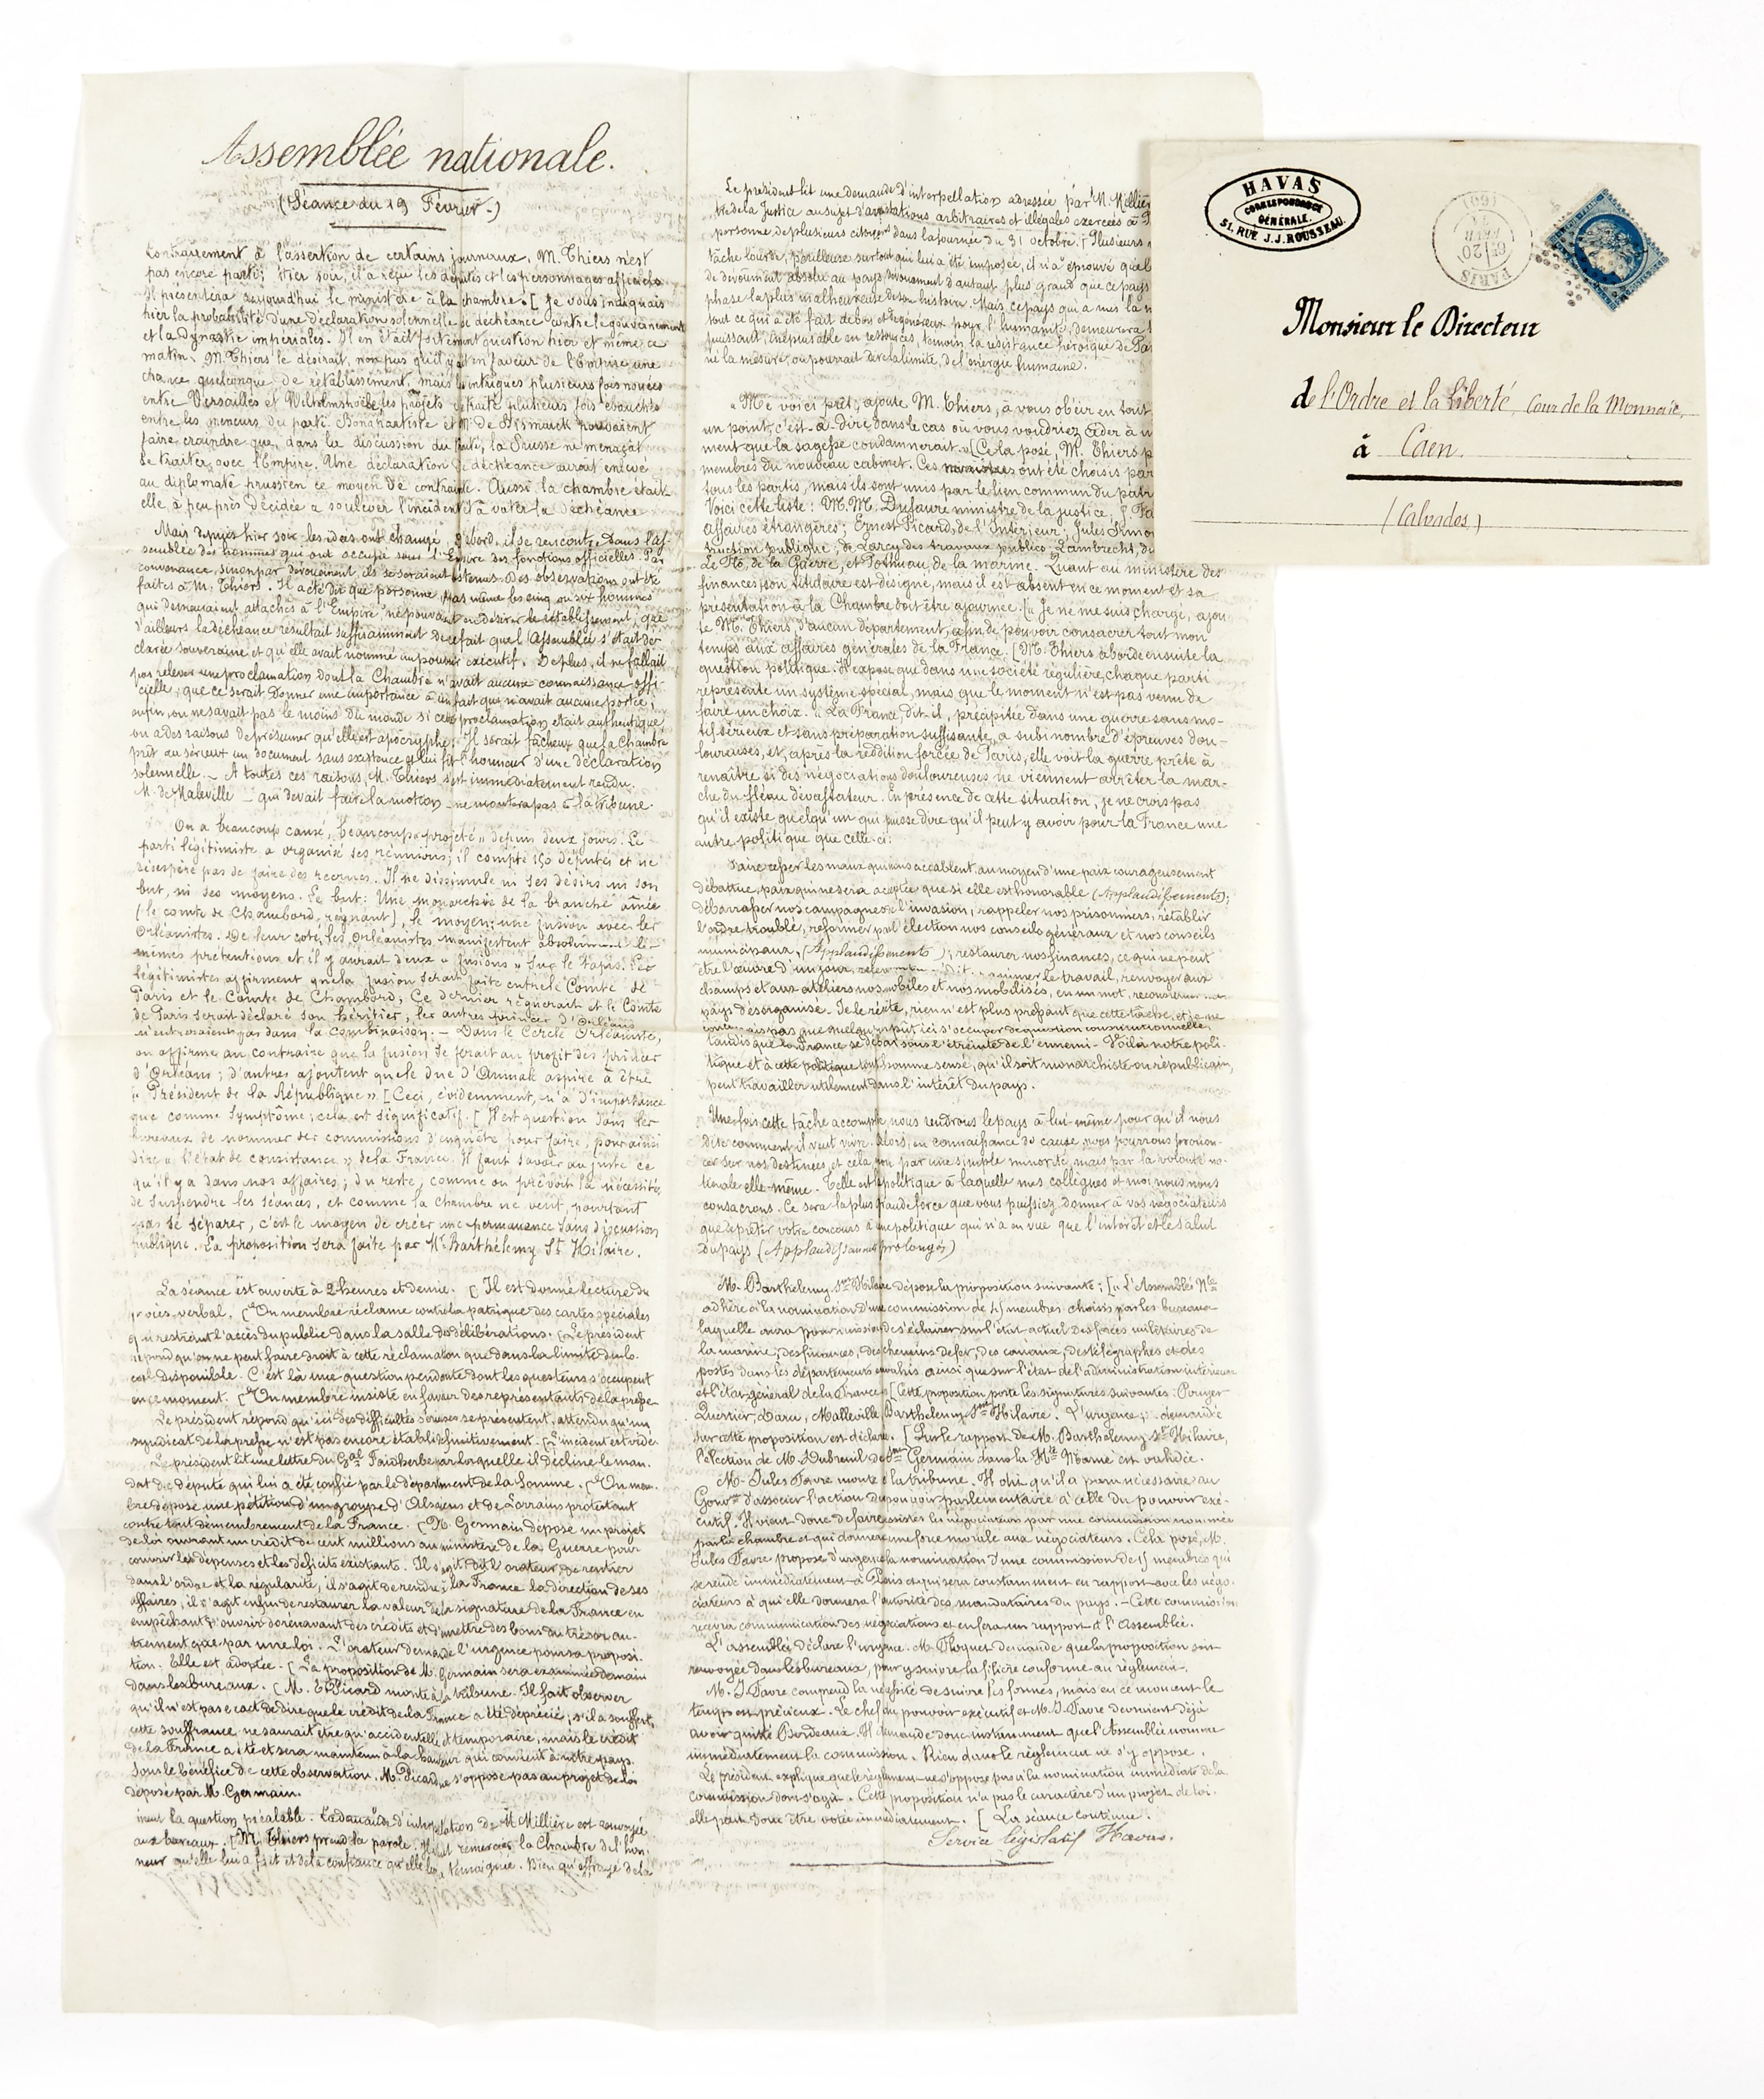 Assemblée nationale.
(Séance du 19 Février.)
Contrairement à l'assertion de certains journaux, M. Thiers n'est
pas encore parti; hier soir, il a reçu les députés et les personnages officiels
Il présentera aujourd'hui le ministère à la chambre. [ Je vous indiquais
hier la probabilité d'une déclaration solennelle de déchéance contre le gouvernement
et la Dynastie impériales. Il en était fortement question hier et même, ce
matin, M. Thiers le désirait, non pas qu'il y ait en faveur de l'Empire une
chance quelconque de rétablissement, mais les intrigues plusieurs fois nouées
entre Versailles et Wilhelmshöhe, les projets de traité plusieurs fois ébauchés
entre les meneurs du parti Bonapartiste et M. de Bismarck pouvaient
faire craindre que, dans la discussion du traité, la Prusse ne menaçât
de traiter avec l'Empire. Une déclaration de déchéance aurait enlevé
au diplomate prussien ce moyen de contrainte. Aussi la chambre était-
elle à peu près décidée à soulever l'incident et à voter la déchéance
Mais depuis hier soir les idées ont changé. D'abord, il se rencontre dans l'as-
semblée des hommes qui ont occupé sous l'Empire des fonctions officielles. Par
convenance, sinon par dévouement, ils se seraient abstenus. Des observations ont été
faites à M. Thiers. Il a été dit que personne, pas même les cinq ou six hommes
qui demeuraient attachés à l'Empire ne pouvait en désirer le rétablissement, que
d'ailleurs la déchéance résultait suffisamment de ce fait que l'Assemblée s'était dé-
clarée souveraine et qu'elle avait nommé un pouvoir exécutif. De plus, il ne fallait
pas relever une proclamation dont la Chambre n'avait aucune connaissance offi-
cielle; que ce serait donner une importance à un fait qui n'avait aucune portée;
enfin, on ne savait pas le moins du monde si cette proclamation était authentique,
on a des raisons de présumer qu'elle est apocryphe. Il serait fâcheux que la Chambre
prît au sérieux un document sans existence et lui fît l'honneur d'une déclaration
solennelle. – A toutes ces raisons, M. Thiers s'est immédiatement rendu.
M. de Maleville – qui devait faire la motion – ne montera pas à la tribune.
On a beaucoup causé, beaucoup « projeté » depuis deux jours. Le
parti légitimiste a organisé ses réunions; il compte 150 députés et ne
désespère pas de faire des recrues. Il ne dissimule ni ses désirs ni son
but, ni ses moyens. Le but: Une monarchie de la branche aînée
(le comte de Chambord, régnant), le moyen: une fusion avec les
Orléanistes. De leur côté, les Orléanistes manifestent absolument les
mêmes prétentions et il y aurait deux « fusions » sur le tapis. Les
légitimistes affirment que la fusion serait faite entre le Comte de
Paris et le Comte de Chambord; Ce dernier régnerait et le Comte
de Paris serait déclaré son héritier; les autres princes d'Orléans
n'entreraient pas dans la combinaison. – Dans le Cercle Orléaniste,
on affirme au contraire que la fusion se ferait au profit des princes
d'Orléans; d'autres ajoutent que le Duc d'Aumale aspire à être
« Président de la République ». [ Ceci, évidemment, n'a d'importance
que comme symptôme; cela est significatif. [ Il est question dans les
bureaux de nommer des commissions d'enquête pour faire, pour ainsi
dire « l'état de consistance » de la France. Il faut savoir au juste ce
qu'il y a dans nos affaires; du reste, comme on prévoit la nécessité
de suspendre les séances, et comme la chambre ne veut, pourtant
pas se séparer, c'est le moyen de créer une permanence sans discussion
publique. La proposition sera faite par Mr Barthélemy St Hilaire.
La séance est ouverte à 2 heures et demie. [ Il est donné lecture du
procès-verbal. [ Un membre réclame contre la pratique des cartes spéciales
qui restreint l'accès du public dans la salle des délibérations. [ Le président
répond qu'on ne peut faire droit à cette réclamation que dans la limite du lo-
cal disponible. C'est là une question pendante dont les questeurs s'occupent
en ce moment. [ Un membre insiste en faveur des représentants de la presse
Le président répond qu'ici des difficultés sérieuses se présentent, attendu qu'un
syndicat de la presse n'est pas encore établi définitivement. [ L'incident est vidé.
Le président lit une lettre du Gal Faidherbe par laquelle il décline le man-
dat de député qui lui a été confié par le département de la Somme. [ Un mem-
bre dépose une pétition d'un groupe d'Alsaciens et de Lorrains protestant
contre tout démembrement de la France. [ M. Germain dépose un projet
de loi ouvrant un crédit de cent millions au ministère de la Guerre pour
couvrir les dépenses et les déficits existants. Il s'agit, dit l'orateur, de rentrer
dans l'ordre et la régularité, il s'agit de rendre à la France la direction de ses
affaires, il s'agit enfin de restaurer la valeur de la signature de la France en
empêchant d'ouvrir dorénavant des crédits et d'émettre des bons du trésor au-
trement que par une loi. – L'orateur demande l'urgence pour sa proposi-
tion. Elle est adoptée. [ La proposition de M. Germain sera examinée demain
dans les bureaux. [ M. E. Picard monte à la tribune. Il fait observer
qu'il n'est pas exact de dire que le crédit de la France a été déprécié; s'il a souffert,
cette souffrance ne saurait être qu'accidentelle et temporaire, mais le crédit
de la France a été et sera maintenu à la hauteur qui convient à notre pays.
Sous le bénéfice de cette observation, M. Picard ne s'oppose pas au projet de loi
déposé par M. Germain.
Le président lit une demande d'interpellation adressée par M. Milliè
tre de la Justice au sujet d'arrestations arbitraires et illégales exercées à P
personne de plusieurs citoyens dans la journée du 31 octobre. [ Plusieurs
inent la question préalable. La demande d'interpellation de M. Millière est renvoyée
aux bureaux. [ M. Thiers prend la parole. Il veut remercier la Chambre de l'hon-
neur qu'elle lui a fait et de la confiance qu'elle lui a témoignée. Bien qu'effrayé de la
tâche lourde, périlleuse surtout qui lui a été imposée, il n'a éprouvé que l
de dévouement absolu au pays, dévouement d'autant plus grand que ce pays
phase la plus malheureuse de son histoire. Mais ce pays qui a mis la
tout ce qui a été fait de bon et de généreux pour l'humanité, demeurera
puissant, inépuisable en ressources, témoin la résistance héroïque de Pa
né la mesure, on pourrait dire la limite, de l'énergie humaine.
« Me voici prêt, ajoute M. Thiers, à vous obéir en tout
un point, c'est-à-dire dans le cas où vous voudriez céder à u
ment que la sagesse condamnerait. » [ Cela posé, M. Thiers p
membres du nouveau cabinet. Ces ministres ont été choisis par
tous les partis, mais ils sont unis par le lien commun du patr
Voici cette liste: M.M. Dufaure ministre de la justice, J. Fa
affaires étrangères; Ernest Picard, de l'Intérieur; Jules Simo
truction publique; de Larcy des travaux publics; Lambrecht, du
Le Flô, de la Guerre, et Pothuau, de la marine. Quant au ministère des
finances, son titulaire est désigné, mais il est absent en ce moment et sa
présentation à la Chambre doit être ajournée. [ « Je ne me suis chargé, ajou-
te M. Thiers, d'aucun département, afin de pouvoir consacrer tout mon
temps aux affaires générales de la France. [ M. Thiers aborde ensuite la
question politique. Il expose que dans une société régulière, chaque parti
représente un système spécial, mais que le moment n'est pas venu de
faire un choix. « La France, dit-il, précipitée dans une guerre sans mo-
tif sérieux et sans préparation suffisante, a subi nombre d'épreuves dou-
loureuses, et, après la reddition forcée de Paris, elle voit la guerre prête à
renaître si des négociations douloureuses ne viennent arrêter la mar-
che du fléau dévastateur. En présence de cette situation, je ne crois pas
qu'il existe quelqu'un qui puisse dire qu'il peut y avoir pour la France une
autre politique que celle-ci:
Faire cesser les maux qui nous accablent, au moyen d'une paix courageusement
débattue, paix qui ne sera acceptée que si elle est honorable (Applaudissements);
débarrasser nos campagnes de l'invasion, rappeler nos prisonniers, rétablir
l'ordre troublé, reformer par l'élection nos conseils généraux et nos conseils
municipaux, (Applaudissements); restaurer nos finances, ce qui ne peut
être l'œuvre d'un jour, ranimer le travail, renvoyer aux
champs et aux ateliers nos mobiles et nos mobilisés, en un mot, reconstituer un
pays désorganisé. Je le répète, rien n'est plus pressant que cette tâche, et je ne
concevrais pas que quelqu'un pût ici s'occuper de question constitutionnelle,
tandis que la France se débat sous l'étreinte de l'ennemi. Voilà notre poli-
tique et à cette politique tout homme sensé, qu'il soit monarchiste ou républicain,
peut travailler utilement dans l'intérêt du pays.
Une fois cette tâche accomplie, nous rendrons le pays à lui-même pour qu'il nous
dise comment il veut vivre. Alors, en connaissance de cause, nous pourrons pronon-
cer sur nos destinées, et cela non par une simple minorité, mais par la volonté na-
tionale elle-même. Telle est la politique à laquelle mes collègues et moi nous nous
consacrons. Ce sera la plus grande force que vous puissiez donner à vos négociateurs
que de prêter votre concours à une politique qui n'a en vue que l'intérêt et le salut
du pays (Applaudissements prolongés)
M. Barthélemy St Hilaire dépose la proposition suivante: [ « L'Assemblée Nle
adhère à la nomination d'une commission de 45 membres choisis par les bureaux
laquelle aura pour mission de s'éclairer sur l'état actuel des forces militaires de
la marine, des finances, des chemins de fer, des canaux, des télégraphes et des
postes dans les départements envahis ainsi que sur l'état de l'administration intérieure
et l'état général de la France. [ Cette proposition porte les signatures suivantes: Pouyer
Quertier, Daru, Malleville, Barthélemy St Hilaire. L'urgence, demandée
sur cette proposition est déclarée. [ Sur le rapport de M. Barthélemy St Hilaire,
l'élection de M. Dubreuil de St Germain dans la Hte Marne est validée.
M. Jules Favre monte à la tribune. Il dit qu'il a paru nécessaire au
Gouvt d'associer l'action du pouvoir parlementaire à celle du pouvoir exé-
cutif. Il vient donc de faire assister les négociateurs par une commission nommée
par la chambre et qui donnera une force morale aux négociateurs. Cela posé, M.
Jules Favre propose d'urgence la nomination d'une commission de 15 membres qui
se rende immédiatement à Paris et qui sera constamment en rapport avec les négo-
ciateurs à qui elle donnera l'autorité des mandataires du pays. – Cette commission
recevra communication des négociations et en fera un rapport à l'Assemblée.
L'assemblée déclare l'urgence. M. Floquet demande que la proposition soit
renvoyée dans les bureaux, pour y suivre la filière conforme au règlement.
M. J. Favre comprend la nécessité de suivre les formes, mais en ce moment le
temps est précieux. Le chef du pouvoir exécutif et M. J. Favre devraient déjà
avoir quitté Bordeaux. Il demande donc instamment que l'Assemblée nomme
immédiatement la commission. Rien dans le règlement ne s'y oppose.
Le président explique que le règlement ne s'oppose pas à la nomination immédiate de la
commission dont s'agit. Cette proposition n'a pas le caractère d'un projet de loi.
elle peut donc être votée immédiatement. [ La séance continue.
Service législatif Havas.
HAVAS
CORRESPONDANCE
GÉNÉRALE.
51, RUE J.J. ROUSSEAU.
PARIS
(60)
Monsieur le Directeur
de l'Ordre et la Liberté, Cour de la Monnaie,
à Caen.
(Calvados)